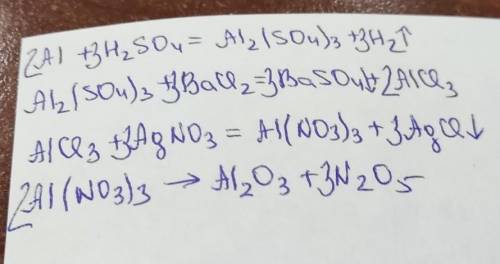 2Al + 3H₂SO₄ = Al₂(SO₄)₃ + 3H₂↑
Al₂(SO₄)₃ + 3BaCl₂ = 3BaSO₄↓ + 2AlCl₃
AlCl₃ + 3AgNO₃ = Al(NO₃)₃ + 3AgCl↓
2Al(NO₃)₃ → Al₂O₃ + 3N₂O₅